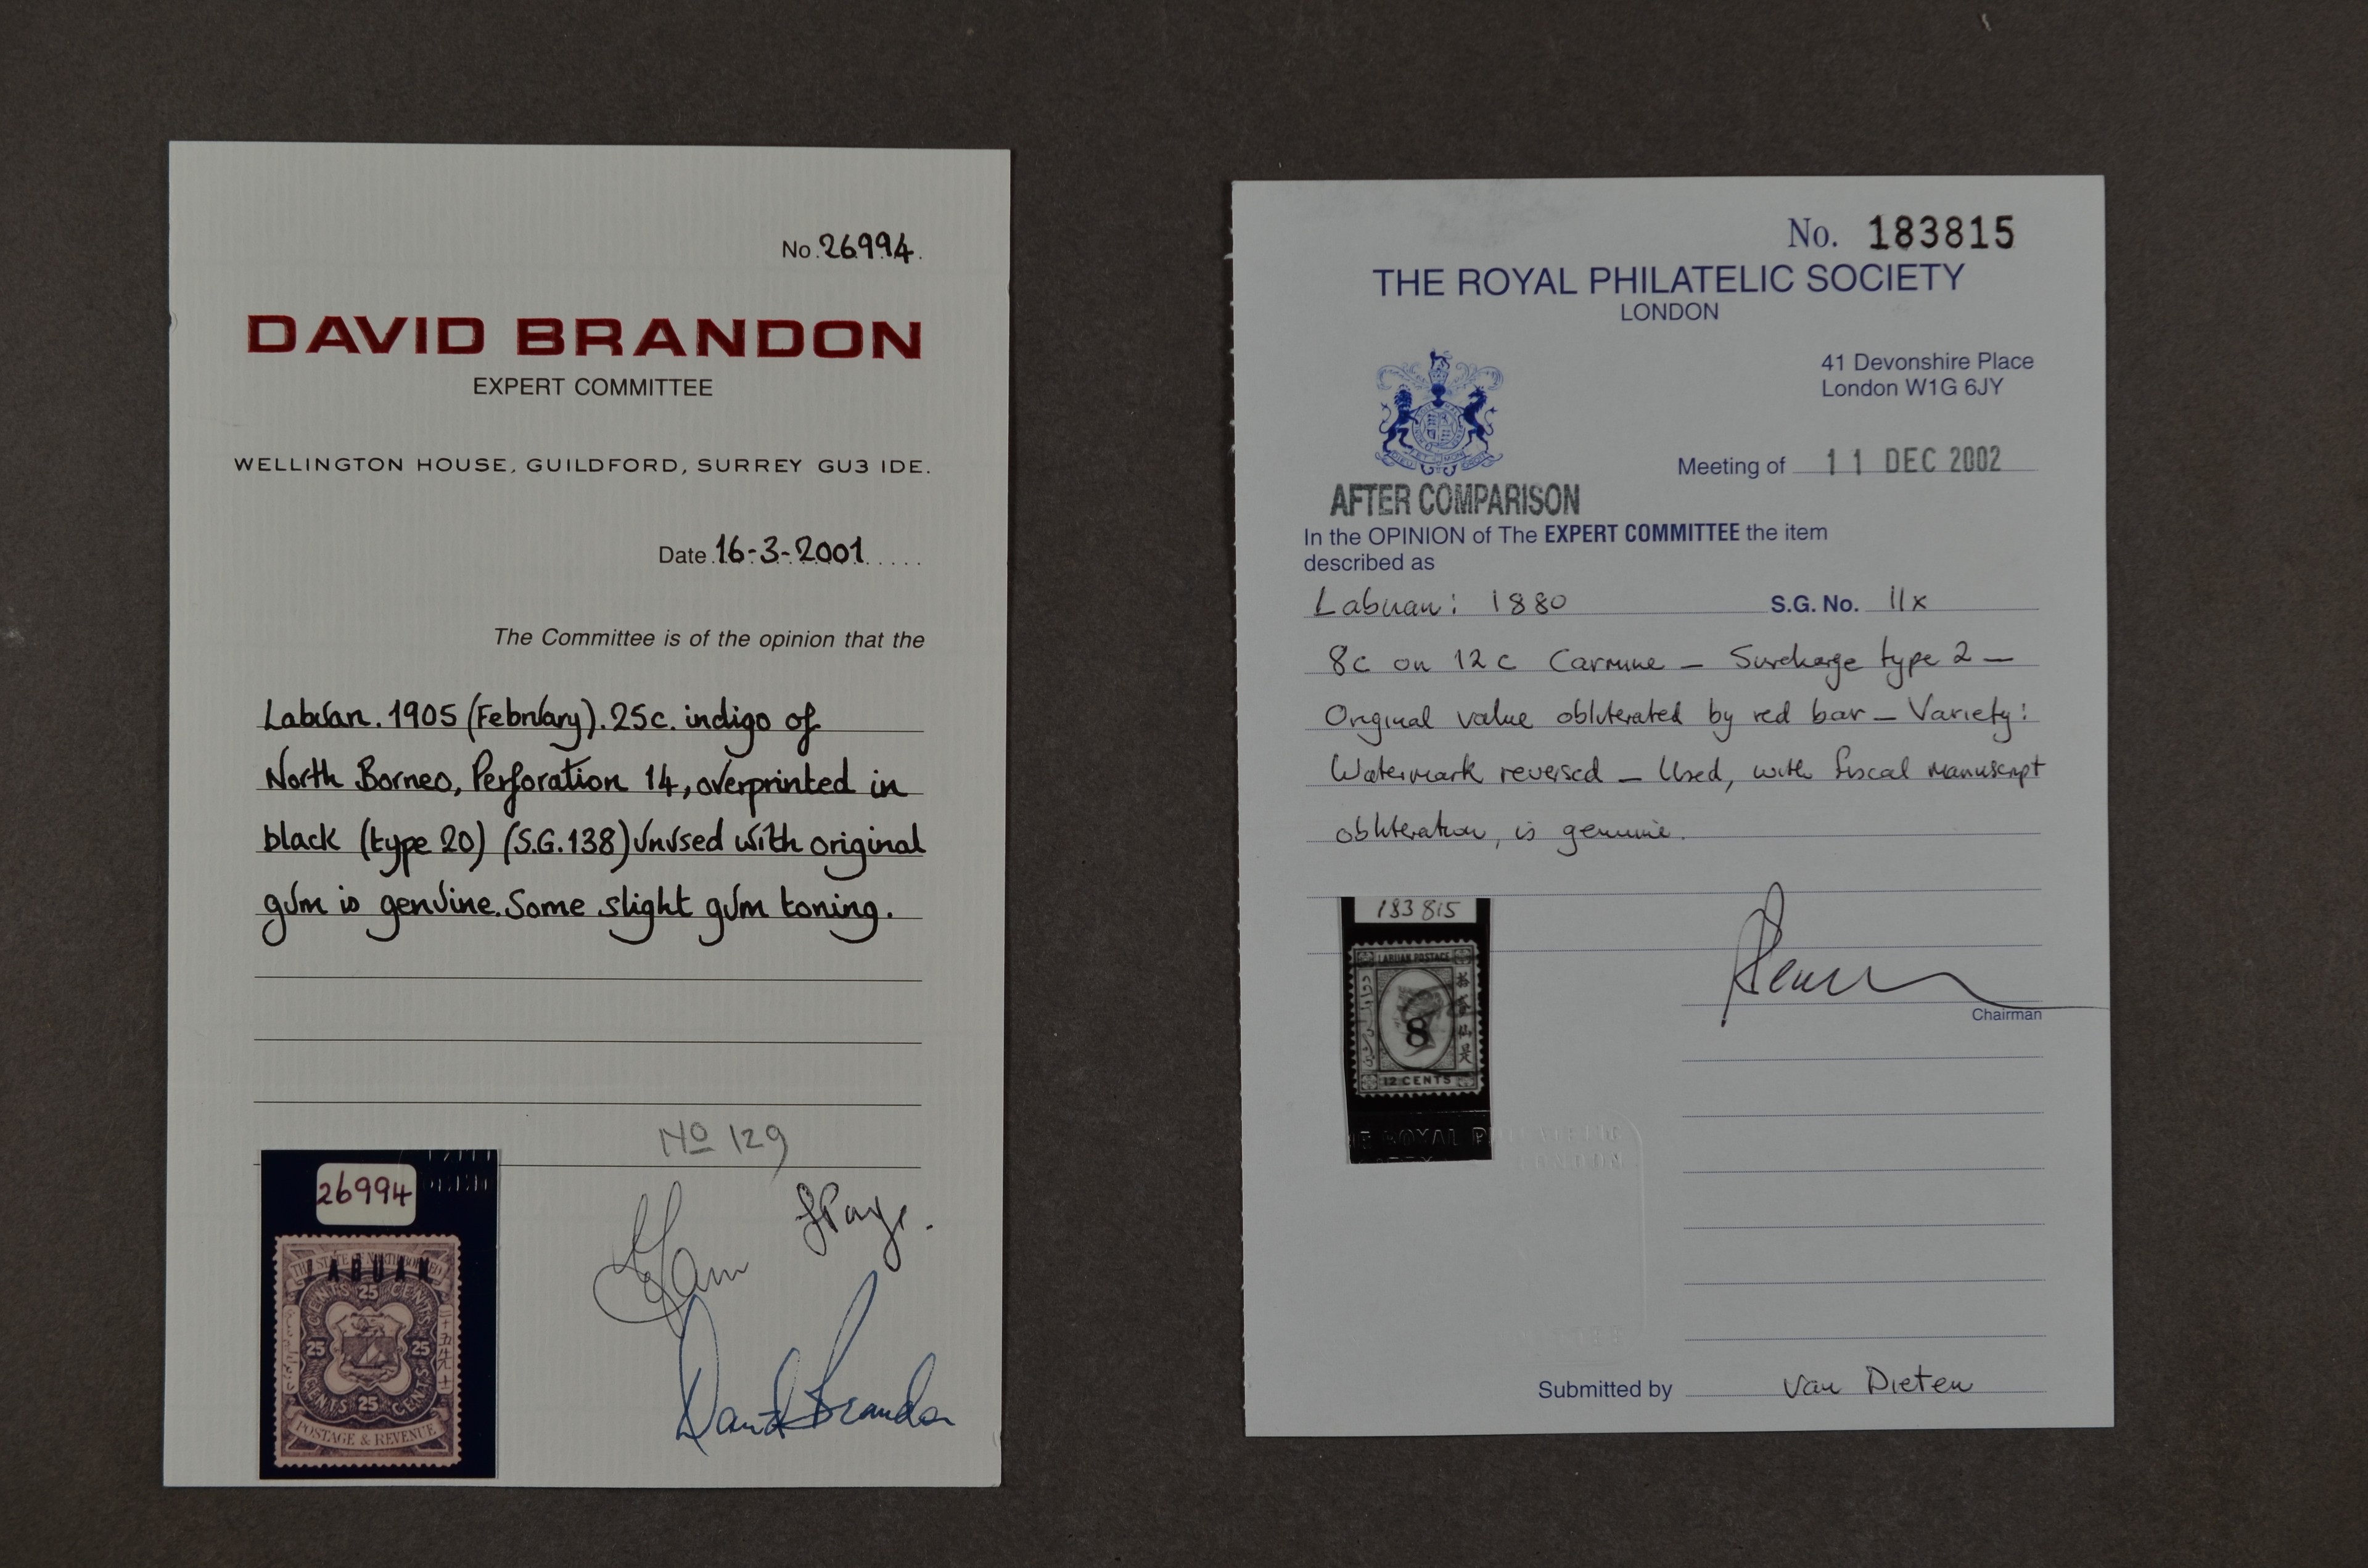 No. 26994.
DAVID BRANDON
EXPERT COMMITTEE
WELLINGTON HOUSE, GUILDFORD, SURREY GU3 IDE.
Date 16-3-2001
The Committee is of the opinion that the
Labuan. 1905 (February). 25c. indigo of
North Borneo, Perforation 14, overprinted in
black (type 20) (S.G. 138) unused with original
gum is genuine. Some slight gum toning.
No 129
26994
LABUAN
THE STATE OF NORTH BORNEO
CENTS 25 CENTS
25 25
CENTS 25 CENTS
POSTAGE & REVENUE
David Brandon
No. 183815
THE ROYAL PHILATELIC SOCIETY
LONDON
41 Devonshire Place
London W1G 6JY
Meeting of 11 DEC 2002
AFTER COMPARISON
In the OPINION of The EXPERT COMMITTEE the item
described as
Labuan: 1880 S.G. No. 11x
8c on 12c Carmine – Surcharge type 2 –
Original value obliterated by red bar – Variety:
Watermark reversed – Used, with fiscal manuscript
obliteration, is genuine.
183815
LABUAN POSTAGE
8
12 CENTS
Chairman
Submitted by Van Dieten